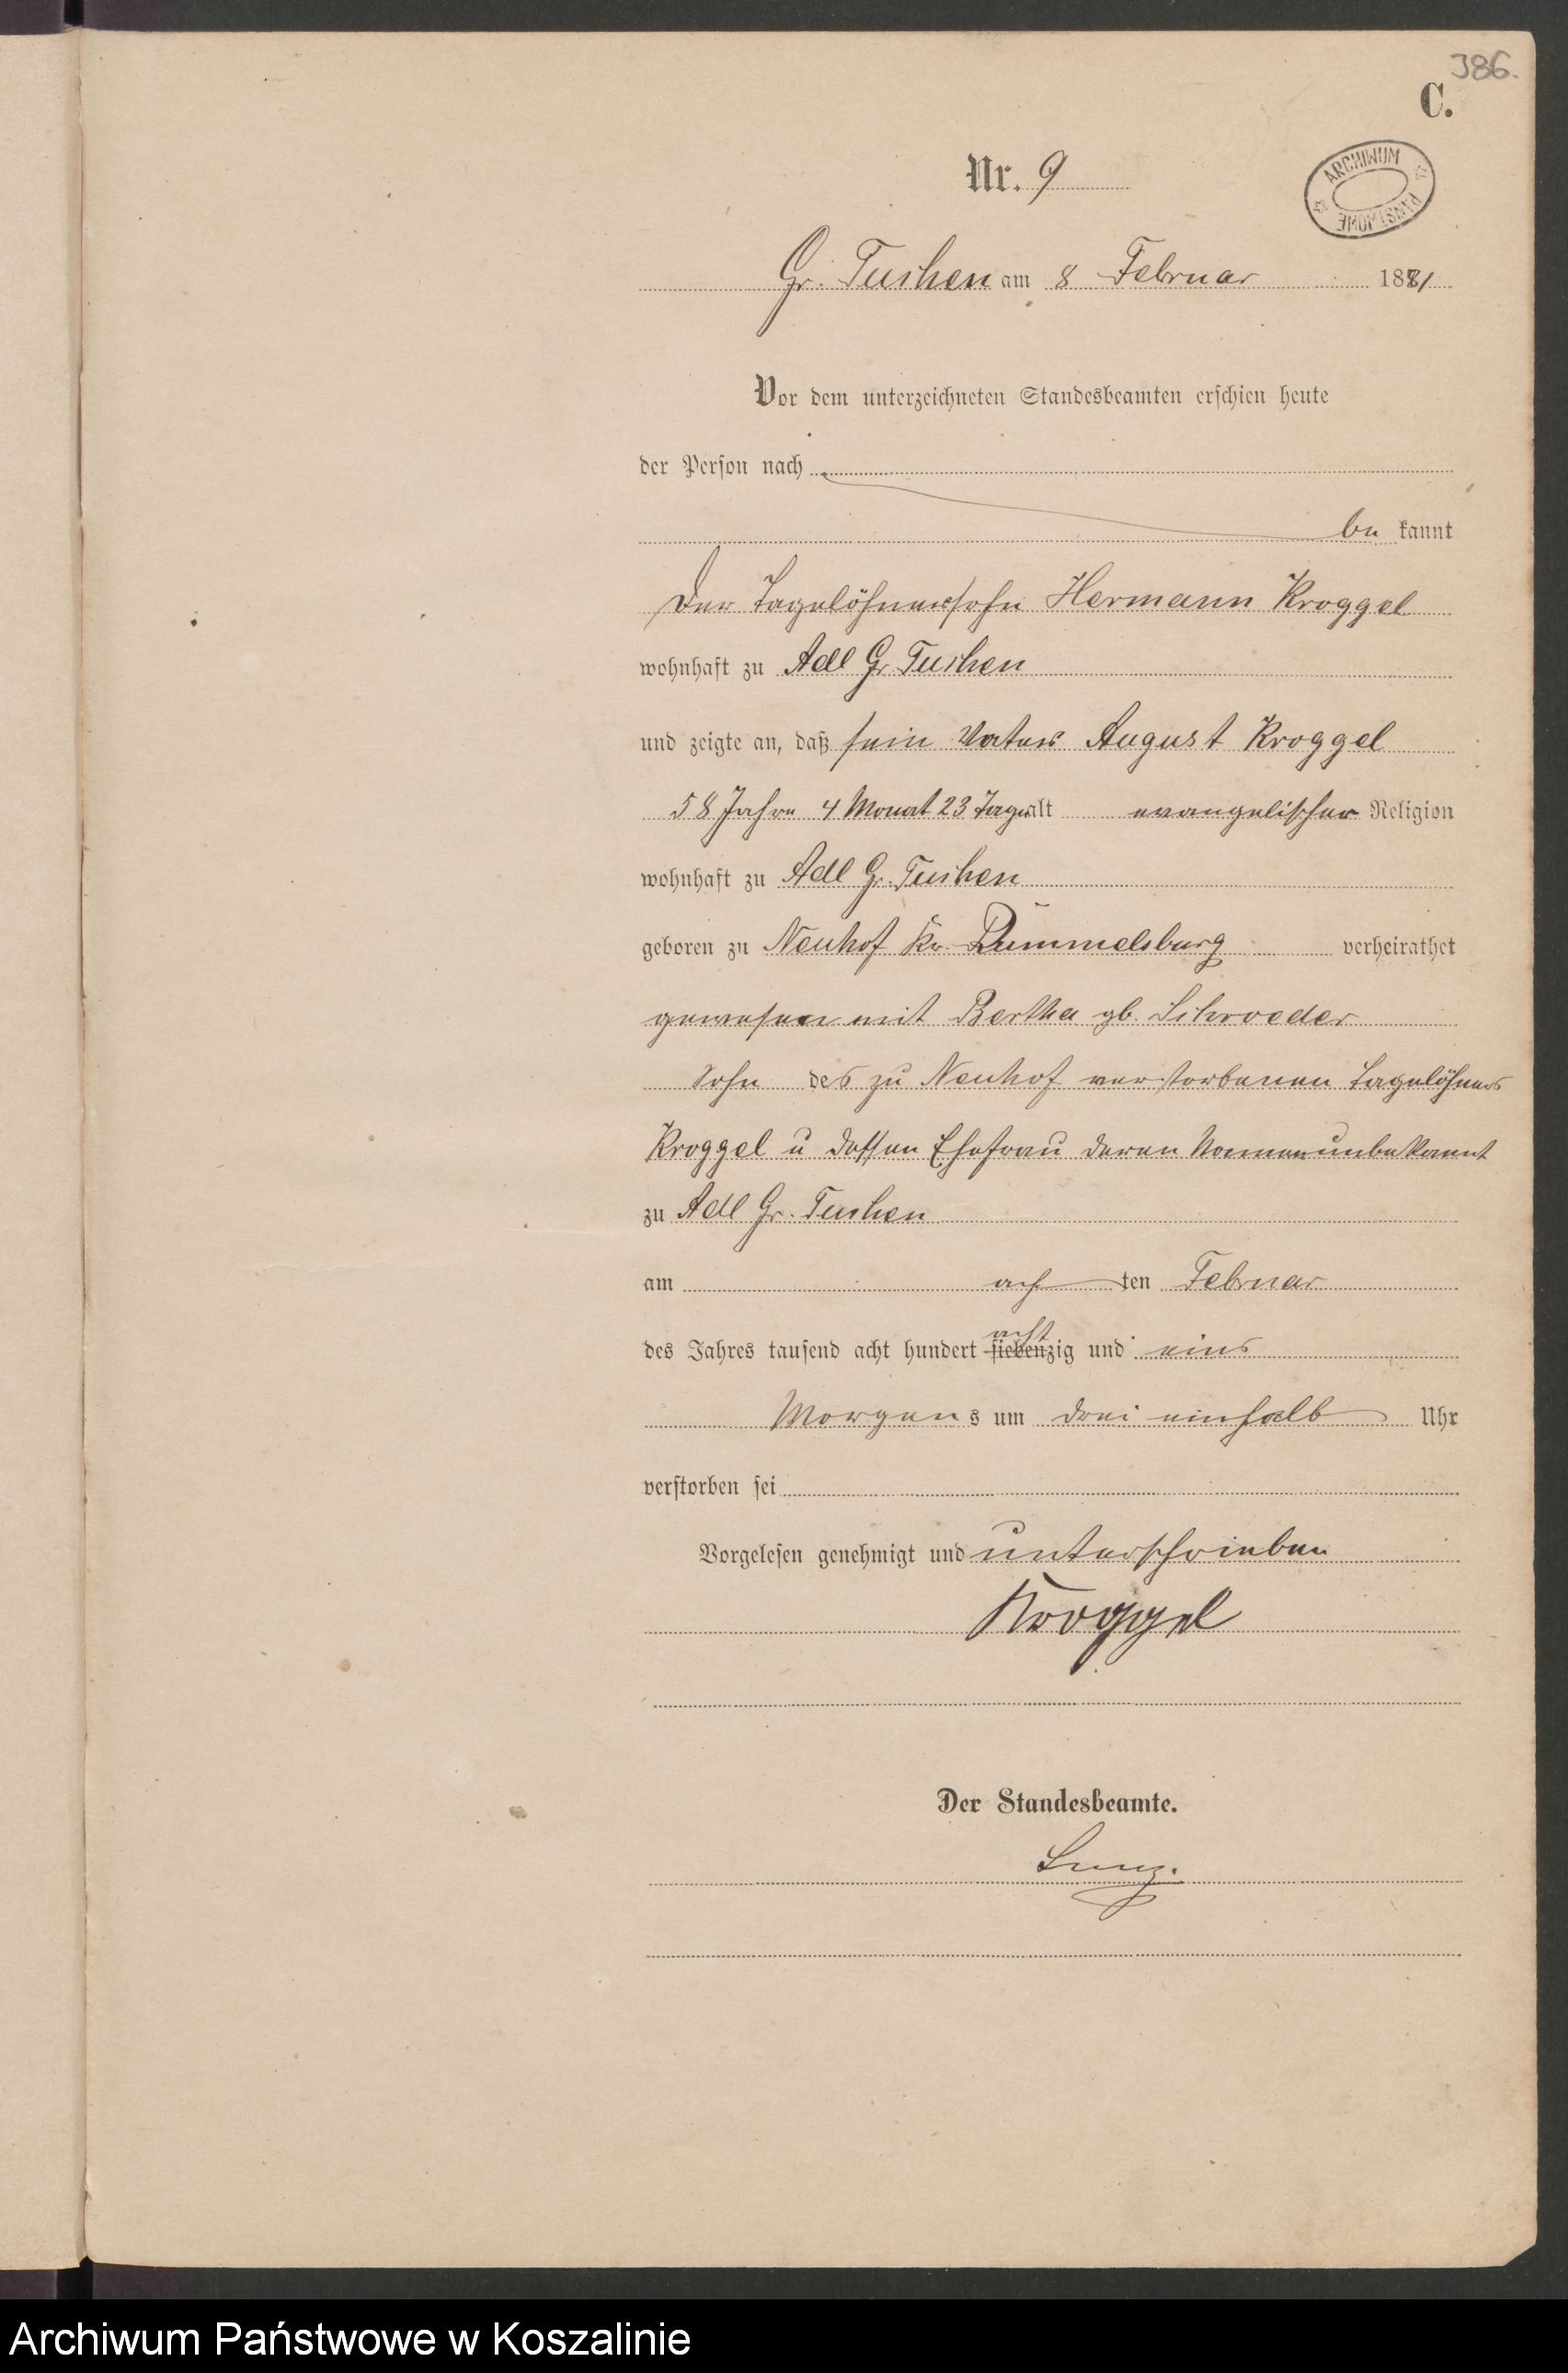 386.
C.
ARCHIWUM PAŃSTWOWE
Nr. 9
Gr. Tuchen am 8 Februar 1881
Vor dem unterzeichneten Standesbeamten erschien heute
der Person nach
be kannt
Der Tagelöhnersohn Hermann Kroggel
wohnhaft zu Adl Gr. Tuchen
und zeigte an, daß sein Vater August Kroggel
58 Jahre 4 Monat 23 Tage alt evangelischer Religion
wohnhaft zu Adl Gr. Tuchen
geboren zu Neuhof Kr. Rummelsburg verheirathet
gewesen mit Bertha gb. Schroeder
Sohn des zu Neuhof verstorbenen Tagelöhners
Kroggel u dessen Ehefrau deren Namen unbekannt
zu Adl Gr. Tuchen
am ach ten Februar
des Jahres tausend acht hundert siebenzig acht und eins
Morgens um drei einhalb Uhr
verstorben sei
Vorgelesen genehmigt und unterschrieben
Kroggel
Der Standesbeamte.
Archiwum Państwowe w Koszalinie